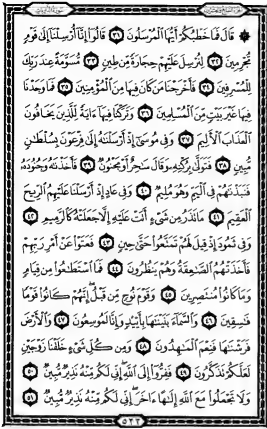 ۞ قَالَ فَمَا خَطْبُكُمْ أَيُّهَا الْمُرْسَلُونَ ﴿٣١﴾ قَالُوا إِنَّا أُرْسِلْنَا إِلَىٰ قَوْمٍ
مُّجْرِمِينَ ﴿٣٢﴾ لِنُرْسِلَ عَلَيْهِمْ حِجَارَةً مِّن طِينٍ ﴿٣٣﴾ مُّسَوَّمَةً عِندَ رَبِّكَ
لِلْمُسْرِفِينَ ﴿٣٤﴾ فَأَخْرَجْنَا مَن كَانَ فِيهَا مِنَ الْمُؤْمِنِينَ ﴿٣٥﴾ فَمَا وَجَدْنَا
فِيهَا غَيْرَ بَيْتٍ مِّنَ الْمُسْلِمِينَ ﴿٣٦﴾ وَتَرَكْنَا فِيهَا ءَايَةً لِّلَّذِينَ يَخَافُونَ
الْعَذَابَ الْأَلِيمَ ﴿٣٧﴾ وَفِي مُوسَىٰ إِذْ أَرْسَلْنَاهُ إِلَىٰ فِرْعَوْنَ بِسُلْطَانٍ
مُّبِينٍ ﴿٣٨﴾ فَتَوَلَّىٰ بِرُكْنِهِ وَقَالَ سَاحِرٌ أَوْ مَجْنُونٌ ﴿٣٩﴾ فَأَخَذْنَاهُ وَجُنُودَهُ
فَنَبَذْنَاهُمْ فِي الْيَمِّ وَهُوَ مُلِيمٌ ﴿٤٠﴾ وَفِي عَادٍ إِذْ أَرْسَلْنَا عَلَيْهِمُ الرِّيحَ
الْعَقِيمَ ﴿٤١﴾ مَا تَذَرُ مِن شَيْءٍ أَتَتْ عَلَيْهِ إِلَّا جَعَلَتْهُ كَالرَّمِيمِ ﴿٤٢﴾
وَفِي ثَمُودَ إِذْ قِيلَ لَهُمْ تَمَتَّعُوا حَتَّىٰ حِينٍ ﴿٤٣﴾ فَعَتَوْا عَنْ أَمْرِ رَبِّهِمْ
فَأَخَذَتْهُمُ الصَّاعِقَةُ وَهُمْ يَنظُرُونَ ﴿٤٤﴾ فَمَا اسْتَطَاعُوا مِن قِيَامٍ
وَمَا كَانُوا مُنتَصِرِينَ ﴿٤٥﴾ وَقَوْمَ نُوحٍ مِّن قَبْلُ إِنَّهُمْ كَانُوا قَوْمًا
فَاسِقِينَ ﴿٤٦﴾ وَالسَّمَاءَ بَنَيْنَاهَا بِأَيْيْدٍ وَإِنَّا لَمُوسِعُونَ ﴿٤٧﴾ وَالْأَرْضَ
فَرَشْنَاهَا فَنِعْمَ الْمَاهِدُونَ ﴿٤٨﴾ وَمِن كُلِّ شَيْءٍ خَلَقْنَا زَوْجَيْنِ
لَعَلَّكُمْ تَذَكَّرُونَ ﴿٤٩﴾ فَفِرُّوا إِلَى اللَّهِ إِنِّي لَكُم مِّنْهُ نَذِيرٌ مُّبِينٌ ﴿٥٠﴾
وَلَا تَجْعَلُوا مَعَ اللَّهِ إِلَٰهًا ءَاخَرَ إِنِّي لَكُم مِّنْهُ نَذِيرٌ مُّبِينٌ ﴿٥١﴾
٥٢٢